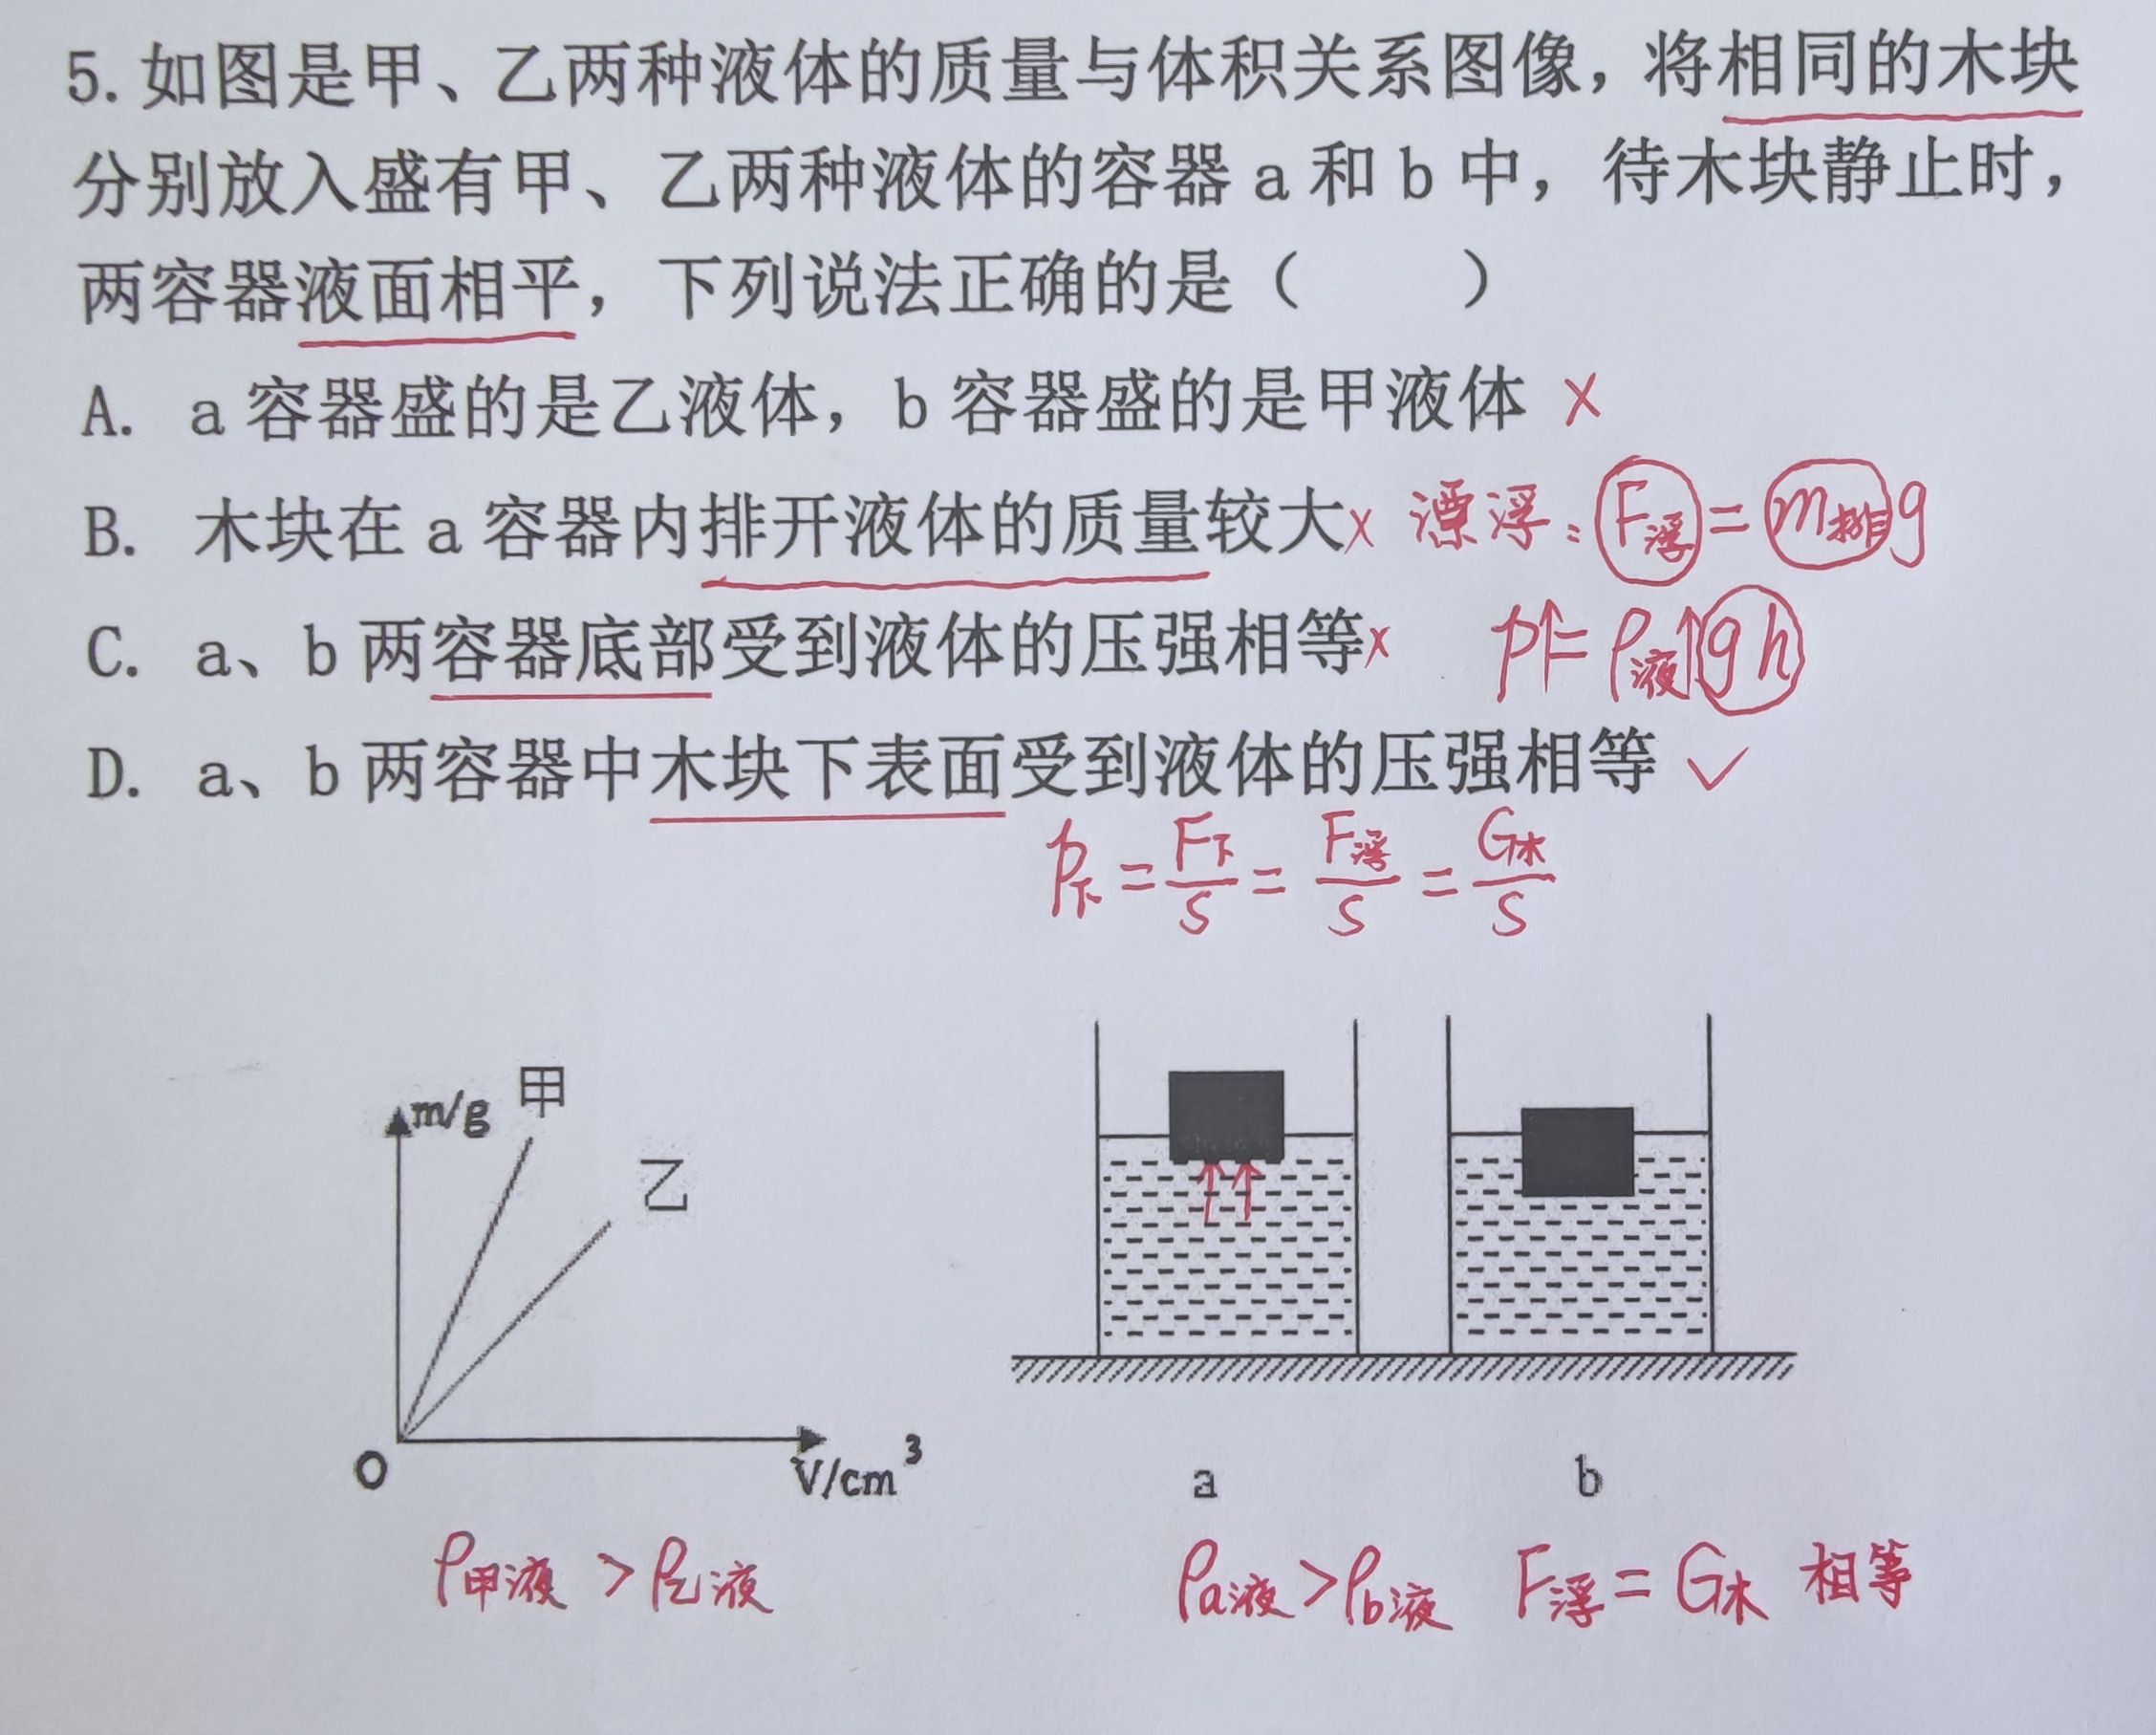 5. 如图是甲、乙两种液体的质量与体积关系图像，将相同的木块
分别放入盛有甲、乙两种液体的容器 a 和 b 中，待木块静止时，
两容器液面相平，下列说法正确的是（　　）
A. a 容器盛的是乙液体，b 容器盛的是甲液体 ×
B. 木块在 a 容器内排开液体的质量较大× 漂浮：F浮 = m排g
C. a、b 两容器底部受到液体的压强相等× p↑= ρ液↑gh
D. a、b 两容器中木块下表面受到液体的压强相等 ✓
p下 = F下/S = F浮/S = G木/S
甲
m/g
乙
O
V/cm³
a b
ρ甲液 > ρ乙液
ρa液 > ρb液 F浮 = G木 相等